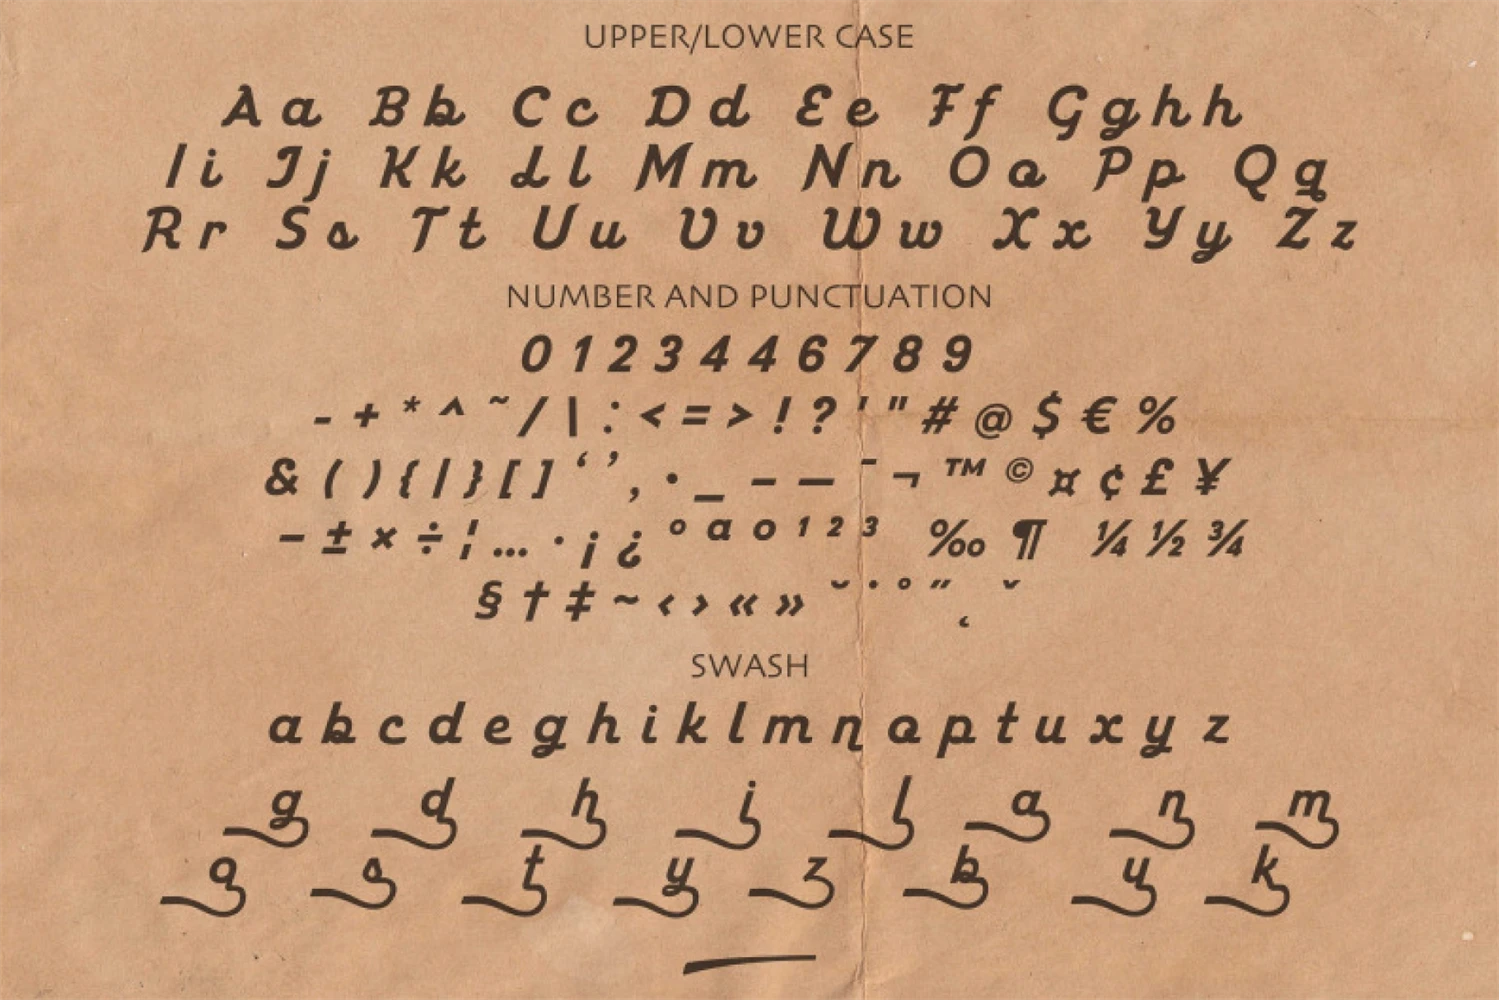 UPPER/LOWER CASE
Aa Bb Cc Dd Ee Ff Gghh
Ii Jj Kk Ll Mm Nn Oo Pp Qq
Rr Ss Tt Uu Vv Ww Xx Yy Zz
NUMBER AND PUNCTUATION
0 1 2 3 4 4 6 7 8 9
- + * ^ ~ / \ : < = > ! ? ' " # @ $ € %
& ( ) { | } [ ] ‘ ’ , • _ – — ¯ ¬ ™ © ¤ ¢ £ ¥
− ± × ÷ ¦ … · ¡ ¿ º ª º ¹ ² ³ ‰ ¶ ¼ ½ ¾
§ † ‡ ~ ‹ › « » ˘ ˙ ˚ ˝ ˛ ˇ
SWASH
a b c d e g h i k l m n o p t u x y z
g d h i l a n m
o s t y z b u k